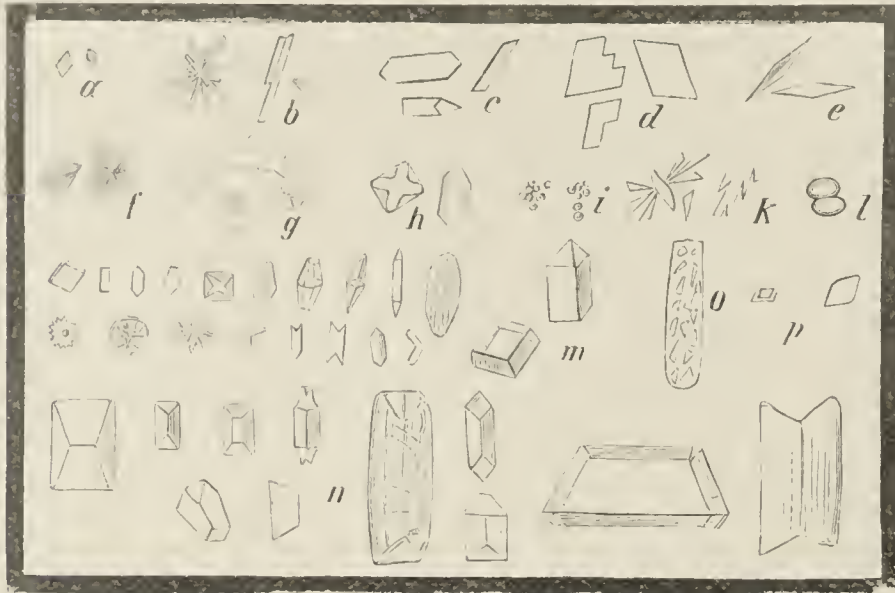 a b c d e
f g h i k l
m o p
n